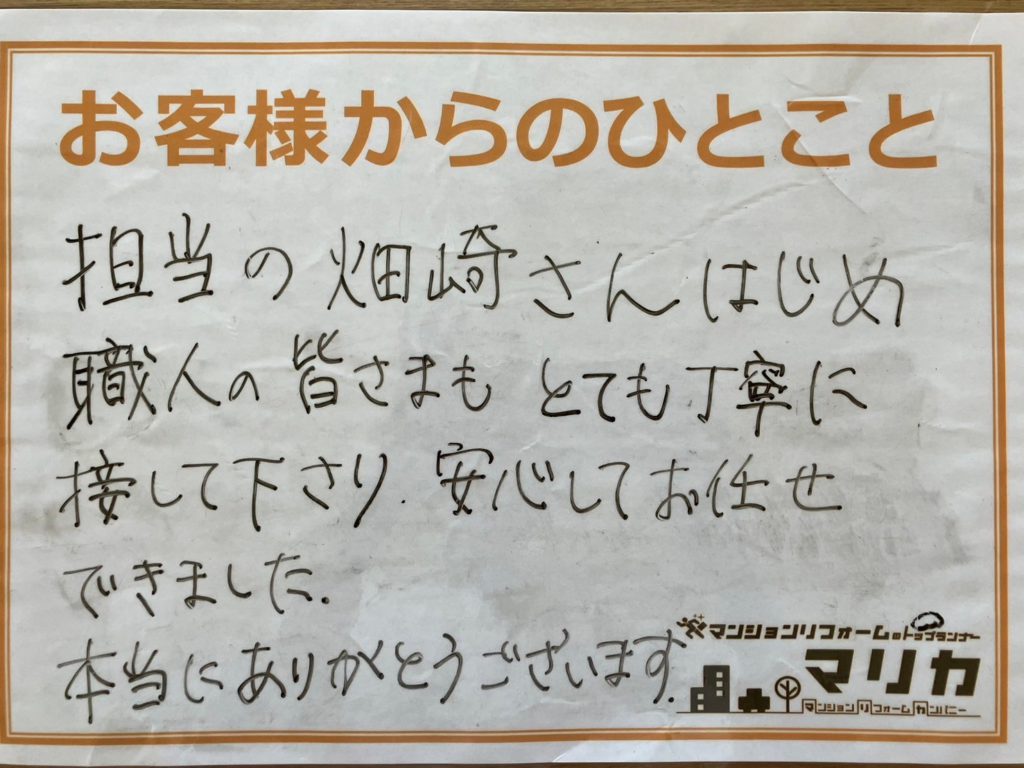 お客様からのひとこと
担当の畑崎さんはじめ
職人の皆さまもとても丁寧に
接して下さり.安心してお任せ
できました.
本当にありがとうございます.
マンションリフォームのトップランナー
マリカ
マンションリフォームカンパニー